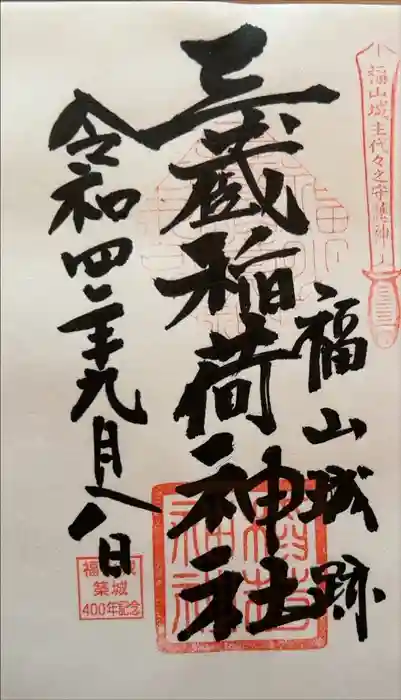 福山城主代々之守護神
福山城跡
三蔵稲荷神社
令和四年九月八日
築城
400年記念